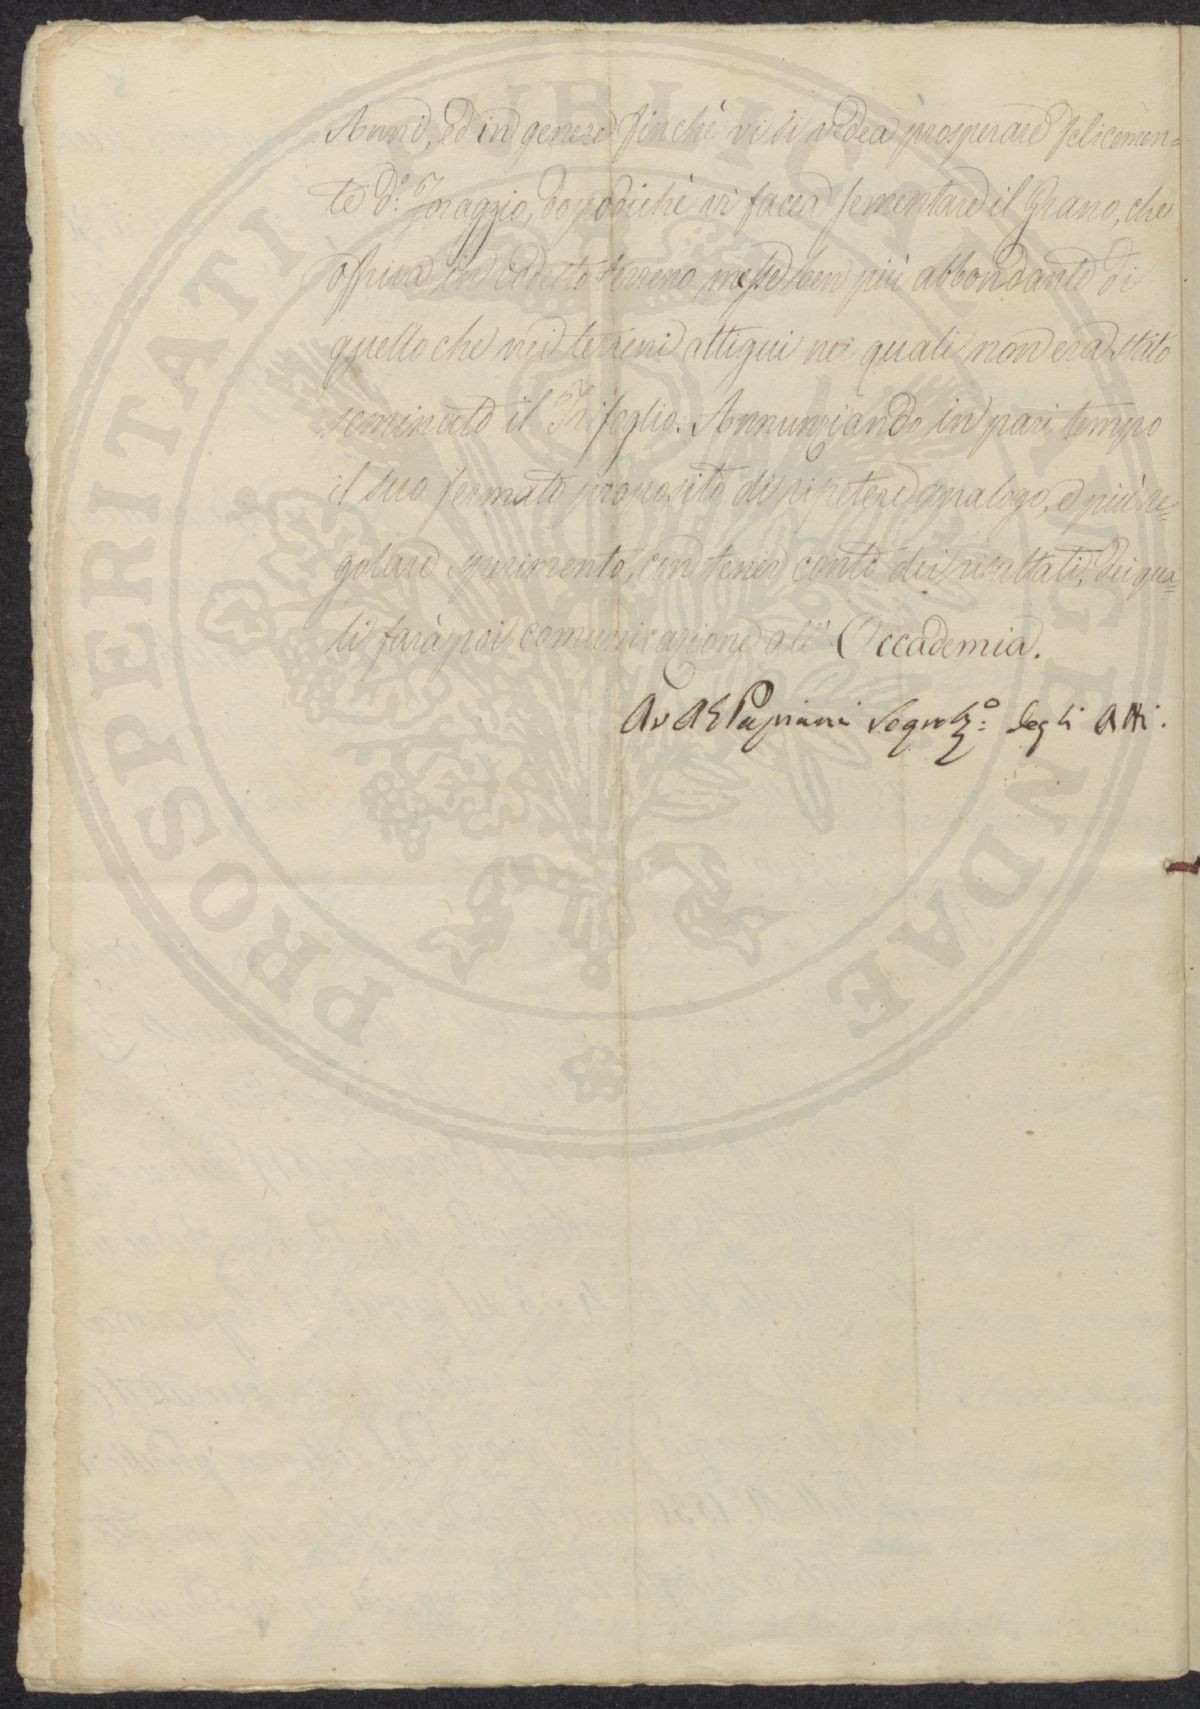 Anni, ed in genere finchè vi si vedea prosperare felicemen=
te d.º Foraggio, dopodichè vi facea sementare il Grano, che
offriva in codesto terreno messe ben più abbondante di
quello che nei terreni attigui nei quali non era stato
seminato il Trifoglio. Annunziando in pari tempo
il suo fermato proposito di ripetere analogo, e più re=
golare sperimento, con tener conto dei risultati, dei qua=
li farà poi comunicazione all' Accademia.
Segret.º degli Atti.
PROSPERITATI PUBLICAE AUGENDAE